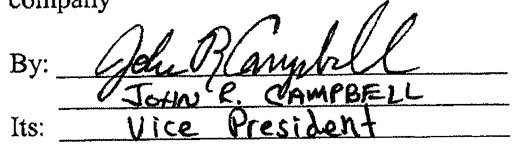 company
By: John R Campbell
JOHN R. CAMPBELL
Its: Vice President